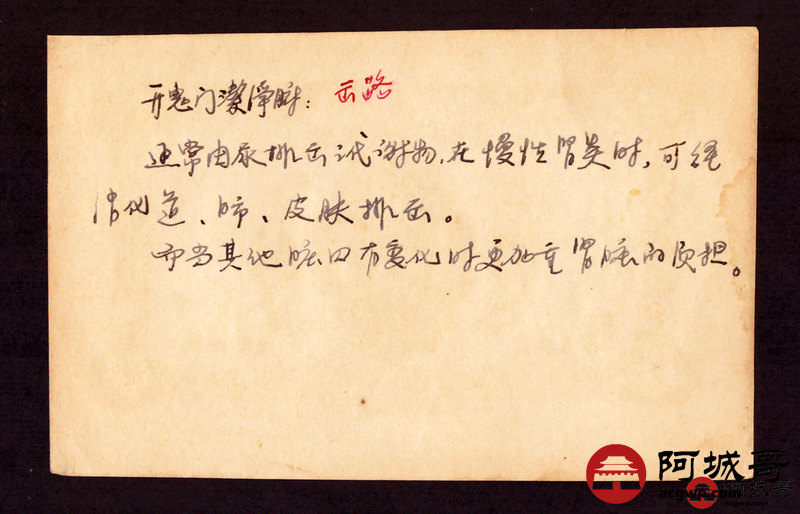 开鬼门潔淨腑: 出路
通常由尿排出代谢物,在慢性肾炎时,可经
消化道、肺、皮肤排出。
而当其他脏四有变化时更加重肾脏的负担。
阿城哥
acgwp.com
阿城哥